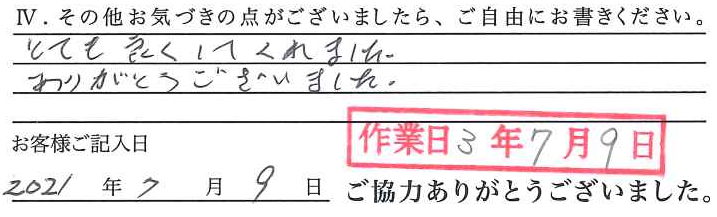 Ⅳ．その他お気づきの点がございましたら、ご自由にお書きください。
とても良くしてくれました。
ありがとうございました。
作業日3年7月9日
お客様ご記入日
2021年7月9日
ご協力ありがとうございました。